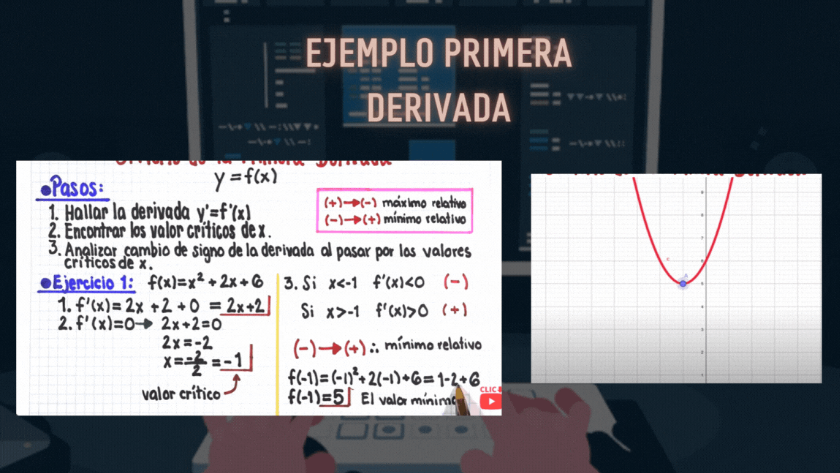 EJEMPLO PRIMERA
DERIVADA
Criterio de la Primera Derivada
y = f(x)
●Pasos:
1. Hallar la derivada y'=f'(x)
2. Encontrar los valor críticos de x.
3. Analizar cambio de signo de la derivada al pasar por los valores
críticos de x.
(+)→(-) máximo relativo
(-)→(+) mínimo relativo
●Ejercicio 1: f(x)=x²+2x+6
1. f'(x)= 2x +2 + 0 = 2x+2
2. f'(x)=0→ 2x+2=0
2x=-2
x=-2/2 = -1
valor crítico
3. Si x<-1 f'(x)<0 (-)
Si x>-1 f'(x)>0 (+)
(-)→(+) ∴ mínimo relativo
f(-1)=(-1)²+2(-1)+6=1-2+6
f(-1)=5 El valor mínimo
CLIC